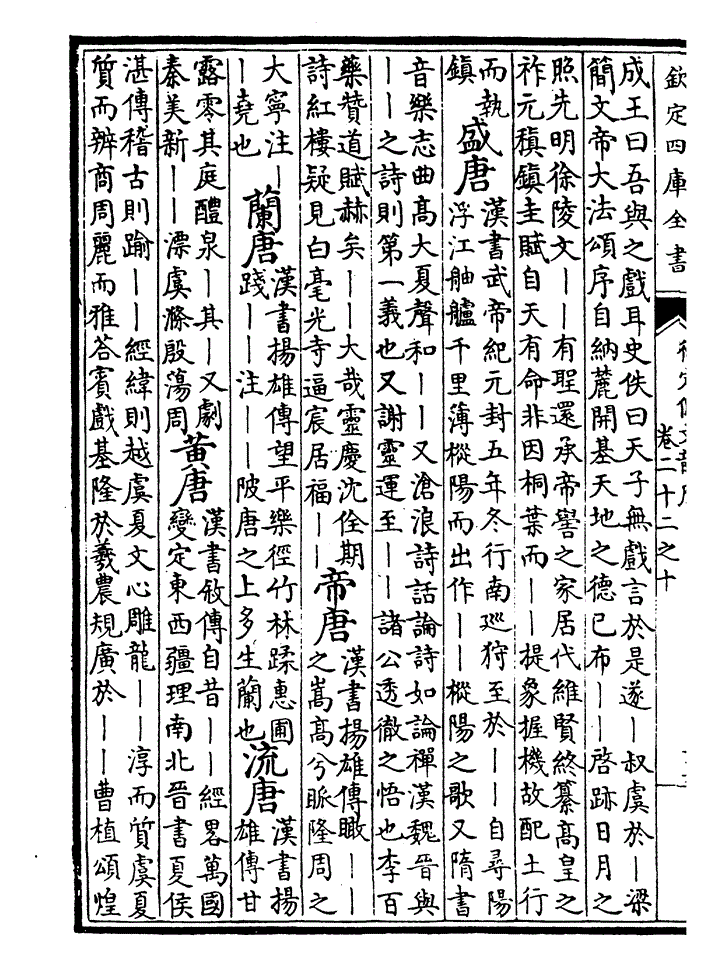 欽定四庫全書
卷二十二之十
成王曰吾與之戲耳史佚曰天子無戲言於是遂｜叔虞於｜梁
簡文帝大法頌序自納麓開基天地之德已布｜｜啓跡日月之
照先明徐陵文｜｜有聖還承帝嚳之家居代維賢終纂高皇之
祚元稹鎮圭賦自天有命非因桐葉而｜｜提象握機故配土行
而執
鎮
盛唐
漢書武帝紀元封五年冬行南巡狩至於｜｜自尋陽
浮江舳艫千里薄樅陽而出作｜｜樅陽之歌又隋書
音樂志曲高大夏聲和｜｜又滄浪詩話論詩如論禪漢魏晉與
｜｜之詩則第一義也又謝靈運至｜｜諸公透徹之悟也李百
藥贊道賦赫矣｜｜大哉靈慶沈佺期
詩紅樓疑見白毫光寺逼宸居福｜｜
帝唐
漢書揚雄傳瞰｜｜
之嵩高兮眽隆周之
大寧注｜
｜堯也
蘭唐
漢書揚雄傳望平樂徑竹林蹂惠圃
踐｜｜注｜｜陂唐之上多生蘭也
流唐
漢書揚
雄傳甘
露零其庭醴泉｜其｜又劇
秦美新｜｜漂虞滌殷蕩周
黃唐
漢書敘傳自昔｜｜經畧萬國
變定東西疆理南北晉書夏侯
湛傳稽古則踰｜｜經緯則越虞夏文心雕龍｜｜淳而質虞夏
質而辨商周麗而雅荅賓戲基隆於羲農規廣於｜｜曹植頌煌